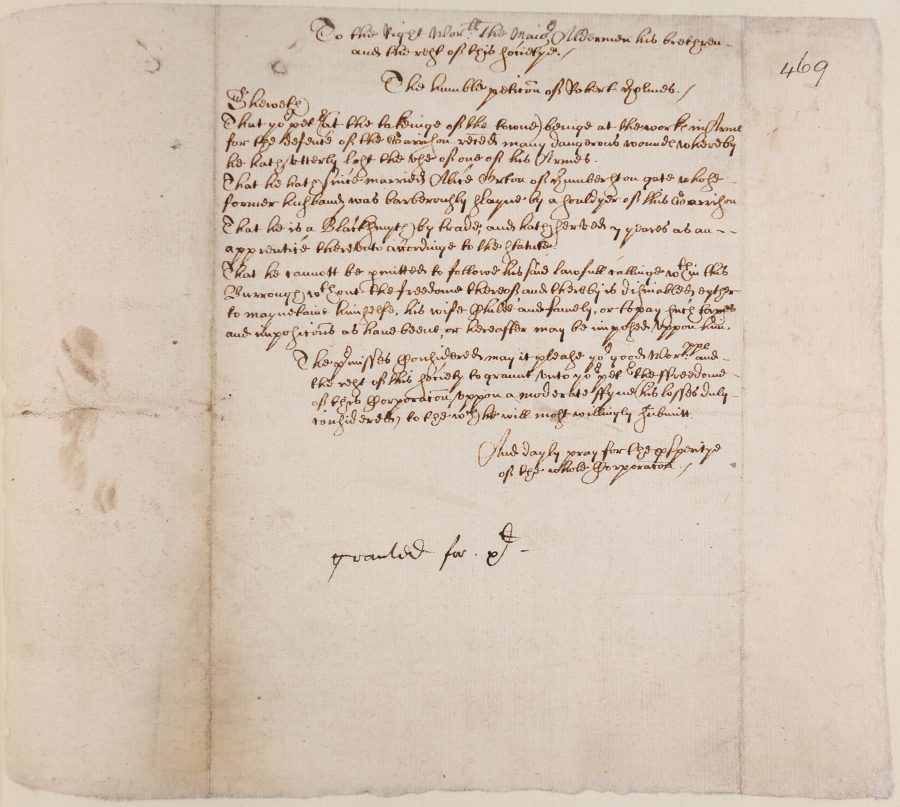 To the Right Wor:ll the Maior Aldermen his brethren
and the rest of this societye./
469
The humble peticon of Robert Holmes./
Sheweth
That yor petr (at the takeinge of the towne) beinge at the works in Armes
for the defence of the Garrison reced many dangerous wounds whereby
he hath utterly lost the use of one of his Armes.
That he hath since married Alice Orton of Humberston gate whose
former husband was barberously slayne by a souldyer of this Garrison
That he is a Blacksmyth by trade and hath served 7 yeares as an
apprentice thereunto accordinge to the statute.
That he cannott be pmitted to followe his said lawfull callinge wthin this
Burrough wthout the freedome thereof and thereby is disinabled eyther
to mayntaine himselfe, his wife Childe and family, or to pay such taxes
and impositions as have beene, or hereafter may be imposed uppon him.
The pmisses Considered may it please yor good Worpps and
the rest of this society to graunt unto yor petr the ffreedome
of this Corporacon uppon a moderate ffyne (his losses duly
considered) to the wch he will most willingly submitt
And dayly pray for the psperitye
of the whole Corporacon./
granted for